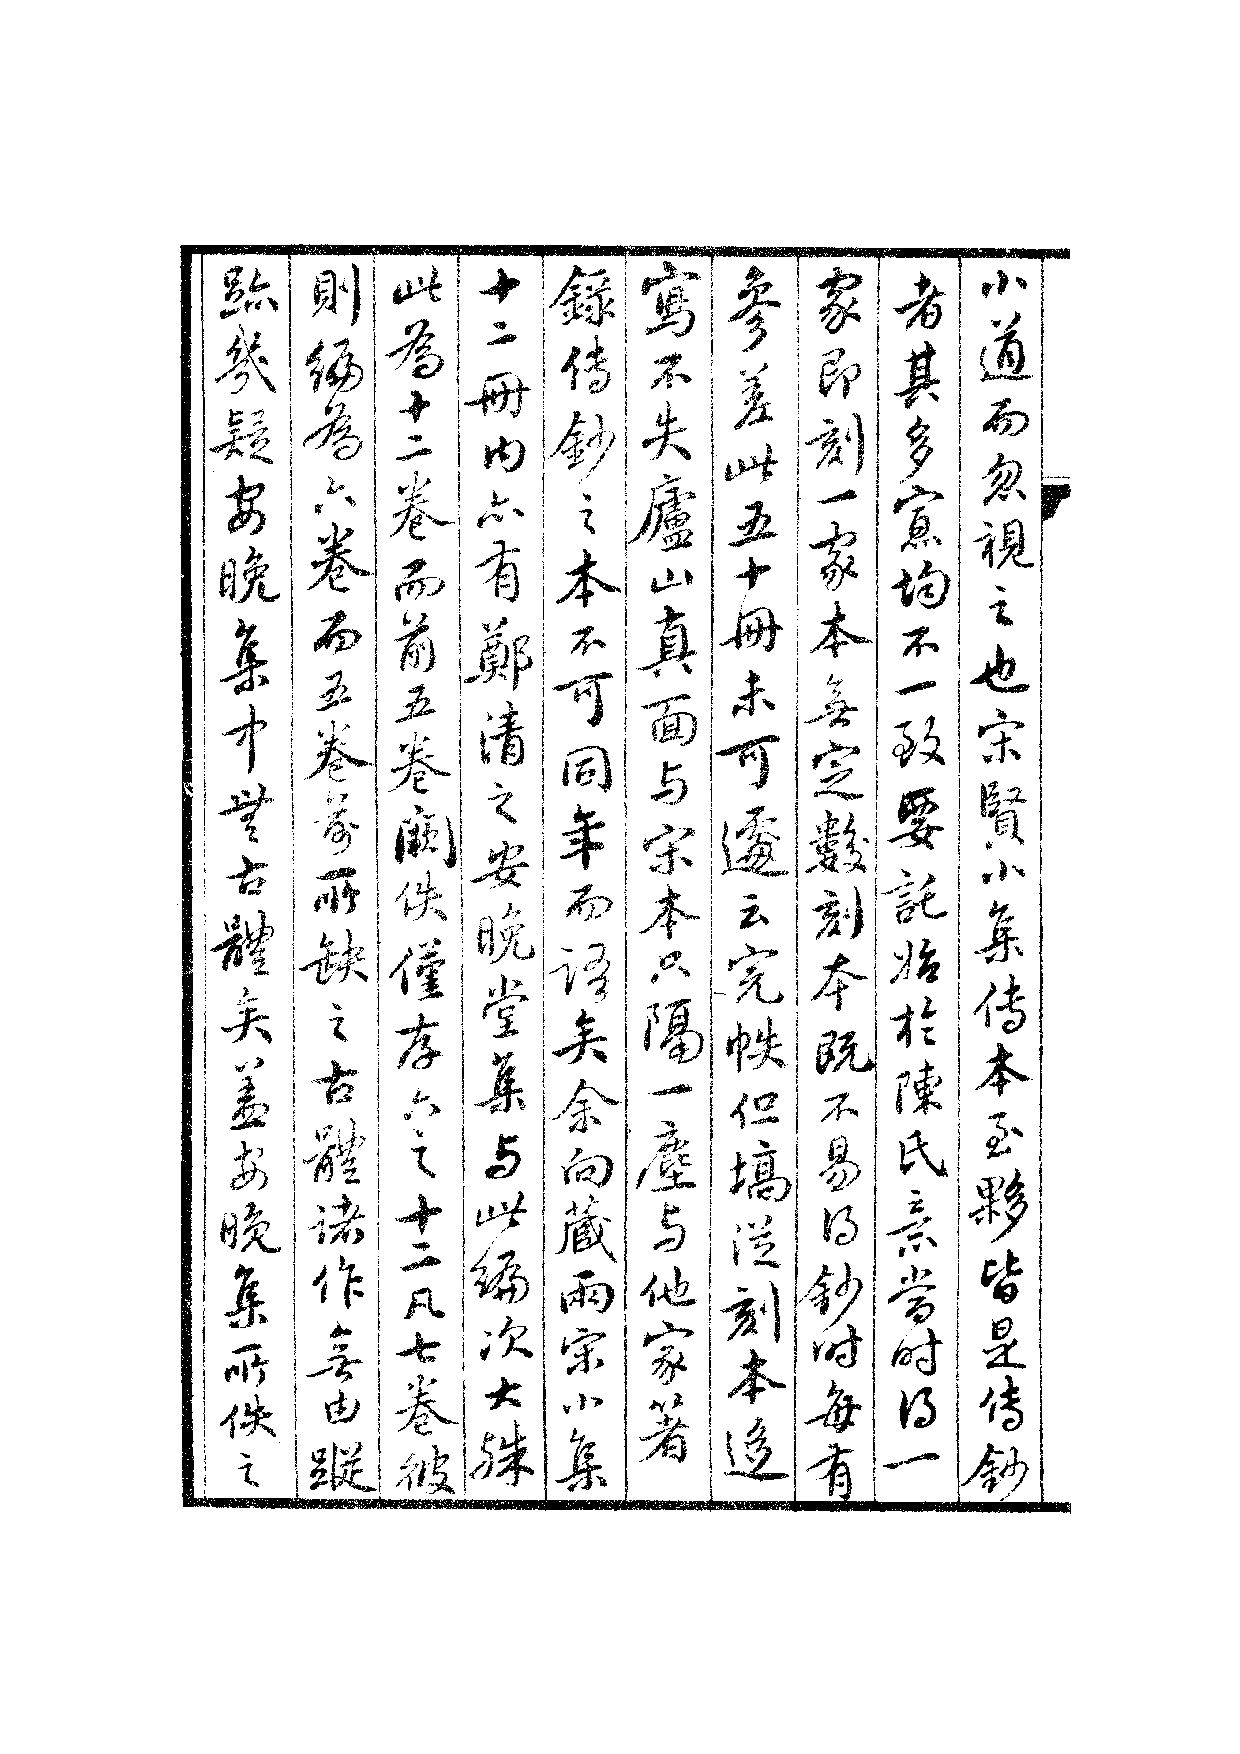 小道而忽視之也宋賢小集傳本至夥皆是傳鈔
者其多寡均不一致要託始於陳氏意當時得一
家即刻一家本無定數刻本既不易得鈔時每有
參差此五十冊未可遽云完帙但搞從刻本迻
寫不失廬山真面与宋本只隔一塵与他家著
錄傳鈔之本不可同年而語矣余向藏兩宋小集
十二冊內亦有鄭清之安晚堂集与此編次大殊
此為十二卷而前五卷闕佚僅存六之十二凡七卷彼
則編為六卷而五卷前所缺之古體諸作無由蹤
跡幾疑安晚集中無古體矣蓋安晚集所佚之